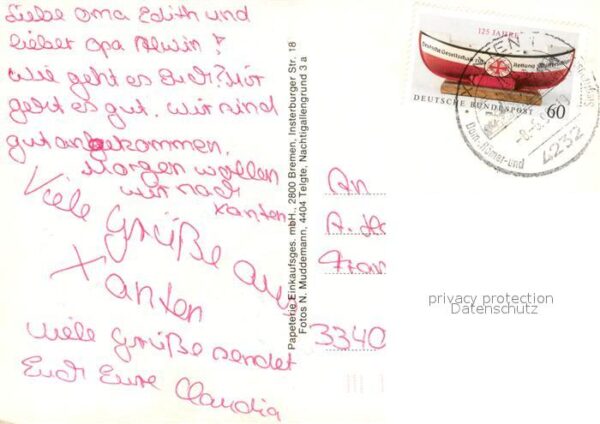 Liebe Oma Edith und
lieber Opa Alwin!
Wie geht es Euch? Mir
geht es gut. Wir sind
gut angekommen.
Morgen wollen
wir nach
Xanten.
Viele Grüße aus
Xanten
Viele Grüße sendet
Euch Eure Claudia
Papeterie Einkaufsges. mbH., 2800 Bremen, Insterburger Str. 18
Fotos N. Muddemann, 4404 Telgte, Nachtigallengrund 3 a
125 JAHRE
Deutsche Gesellschaft zur Rettung Schiffbrüchiger
DEUTSCHE BUNDESPOST 60
XANTEN 1
Dom-, Römer- und
4232
An
3340
privacy protection
Datenschutz